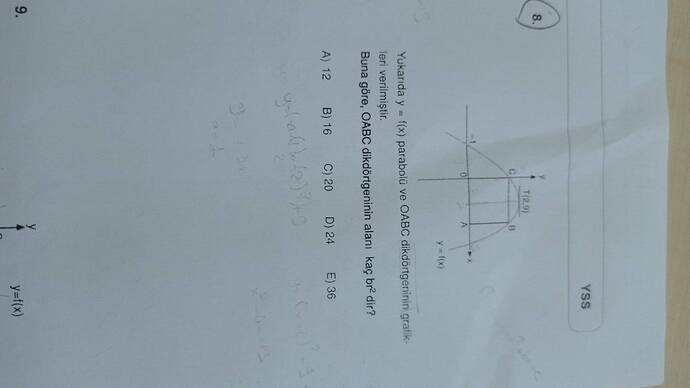 YSS
8.
y
C
T(2,9)
B
-1
O
A
x
y = f(x)
Yukarıda y = f(x) parabolü ve OABC dikdörtgeninin grafik-
leri verilmiştir.
Buna göre, OABC dikdörtgeninin alanı kaç br² dir?
A) 12 B) 16 C) 20 D) 24 E) 36
9.
y
y=f(x)